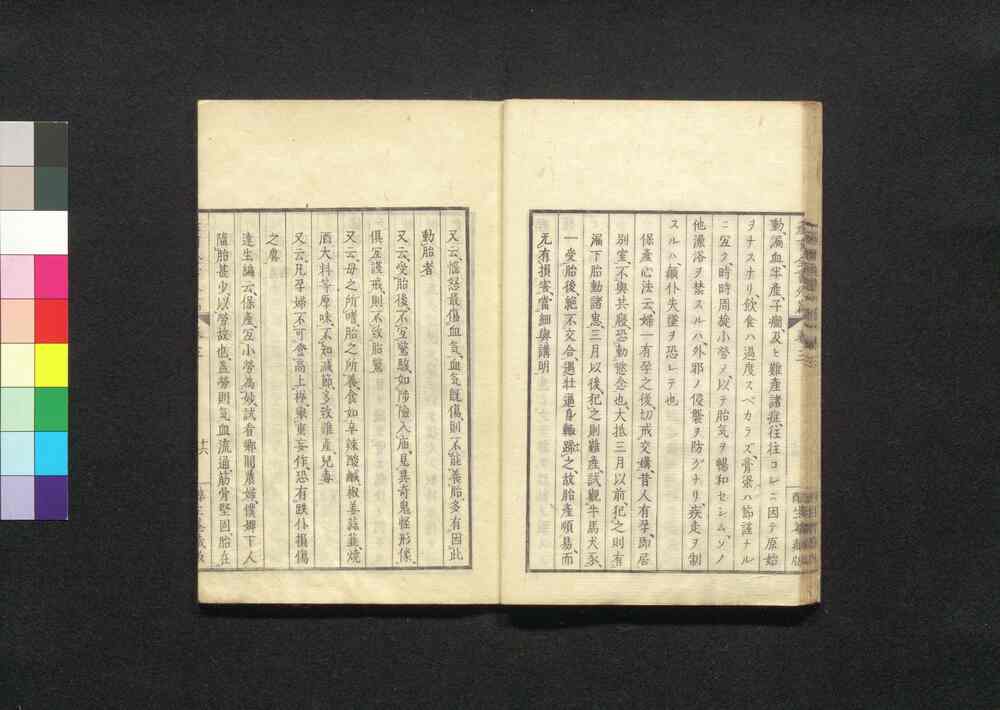 動、漏血半産、子癇、及ヒ難産諸症、往往コレニ因テ原始
ヲナスナリ、飲食ハ過度スベカラズ、膏粱ハ節謹ナル
ニ宜ク、時時周旋小勞メ、以テ胎気ヲ暢和セシム、ソノ
他灑浴ヲ禁スルハ、外邪ノ侵襲ヲ防グナリ、疾走ヲ制
スルハ、顛仆失墜ヲ恐レテ也
保産心法云、婦一有孕之後、切戒交媾、昔人有孕、即居
別室、不與共寢、恐動慾念也、大抵三月以前犯之則有
漏下胎動諸患、三月以後、犯之則難産、試觀牛馬犬豕、
一受胎後、絶不交合、遇牡逼身、輙蹄之、故胎產順易、而
无有損害、當細與講明
又云、惱怒最傷血気、血気既傷、則不能養胎、多有因此
動胎者
又云、受胎後、不宜驚駭、如涉險入庙、見異奇鬼怪形像、
俱宜謹戒、則不致胎驚
又云、母之所嗜、胎之所養、食如辛辣酸鹹椒姜蒜薤燒
酒大料等厚味、不知減節、多致難産兒毒
又云、凡孕婦不可登高上梯、乘車妄作、恐有跌仆損傷
之虞
達生編云、保產、宜小勞為妙、試看鄉間農婦、僕婢下人
墮胎甚少、以勞故也、蓋勞則気血流通、筋骨堅固、胎在
卷三
十六